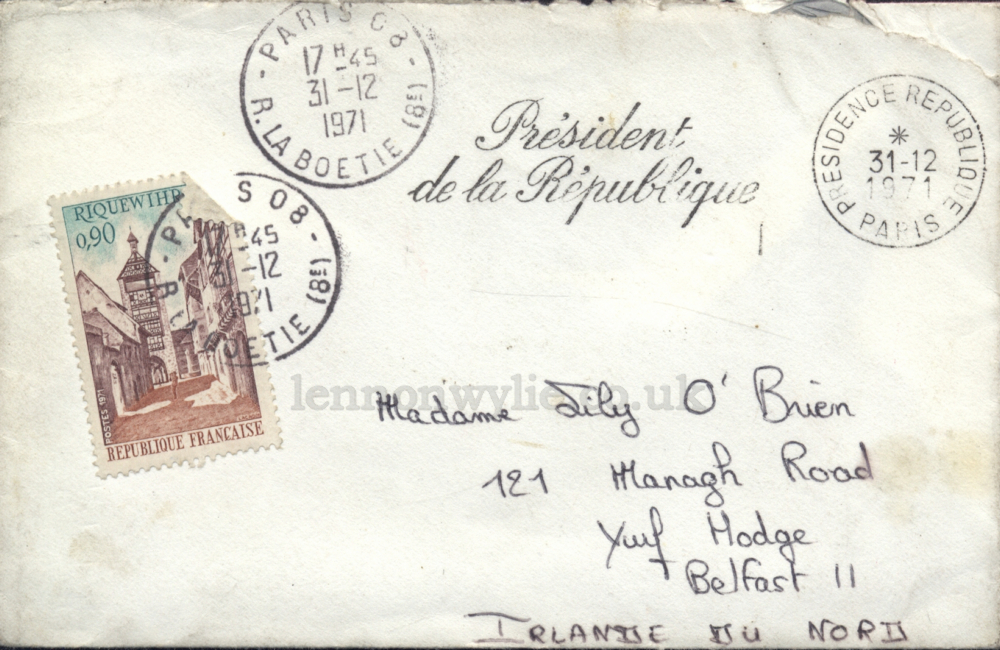 PARIS 08
17H-45
31-12
1971
R. LA BOETIE (8E)
Président
de la République
PRESIDENCE REPUBLIQUE
*
31-12
1971
PARIS
RIQUEWIHR
0,90
S 08
45
-12
1971
OETIE (8E)
POSTES 1971
REPUBLIQUE FRANÇAISE
lennonwylie.co.uk
Madame Lily O'Brien
121 Managh Road
Hodge
Belfast 11
IRLANDE DU NORD